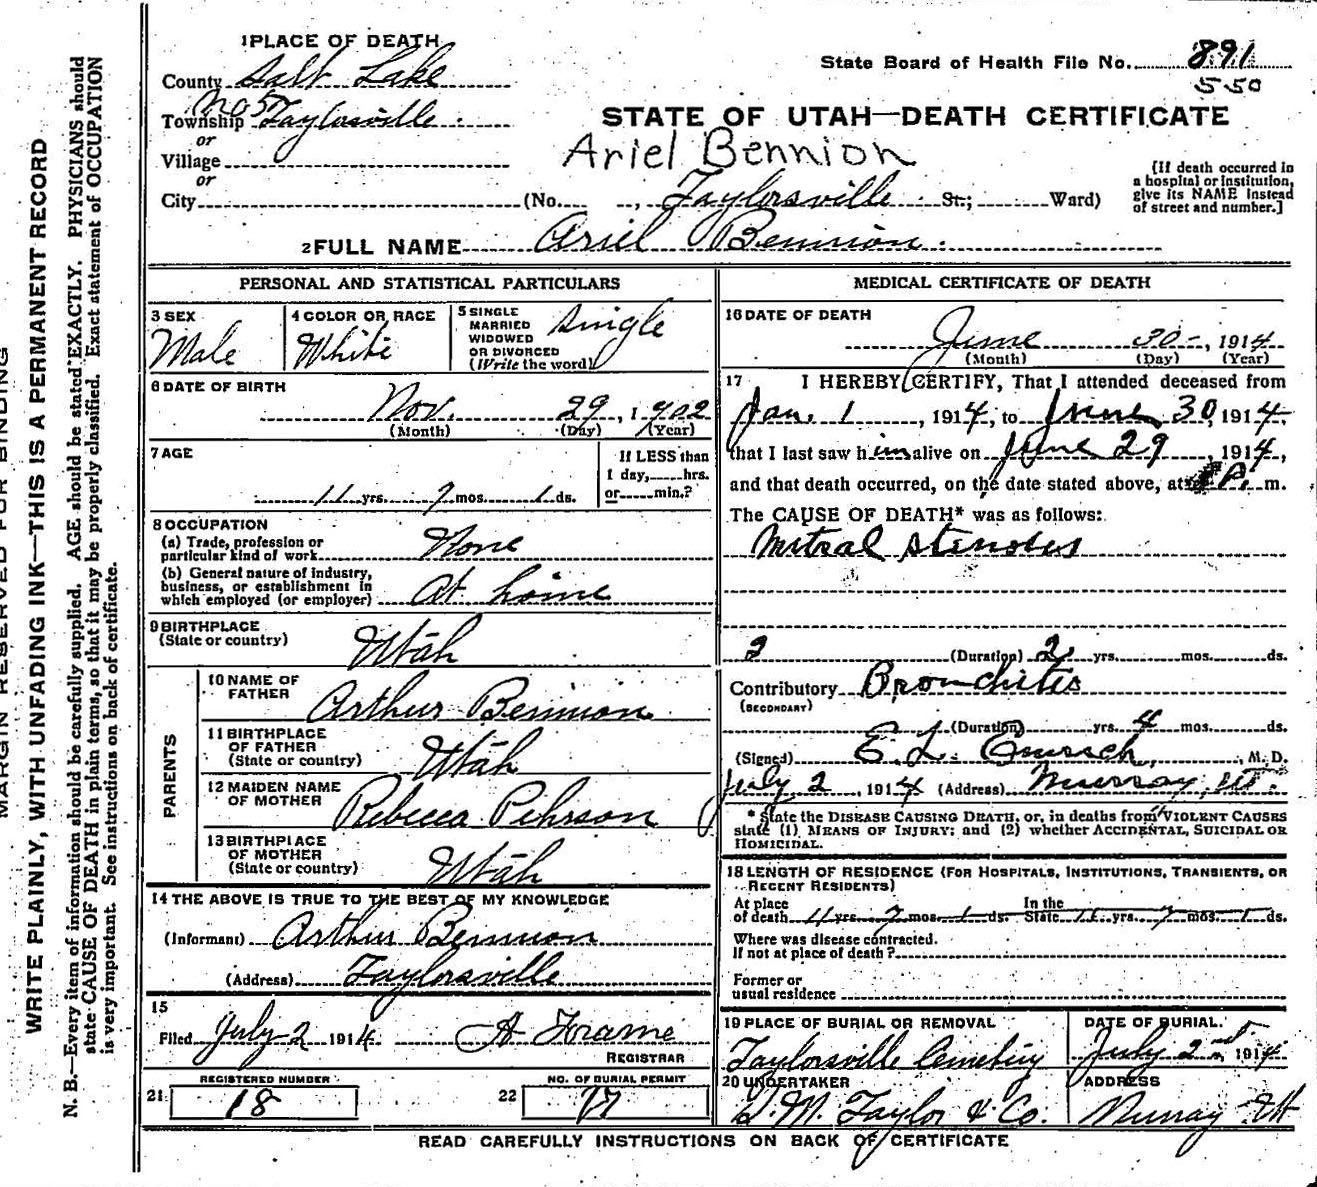 1 PLACE OF DEATH
County Salt Lake
State Board of Health File No. 891
550
No 5
Township Taylorsville
or
STATE OF UTAH—DEATH CERTIFICATE
Ariel Bennion
Village
or
City (No. , Taylorsville St.; Ward)
[If death occurred in
a hospital or institution,
give its NAME instead
of street and number.]
2 FULL NAME Ariel Bennion.
PERSONAL AND STATISTICAL PARTICULARS
3 SEX
Male
4 COLOR OR RACE
White
5 SINGLE
MARRIED
WIDOWED
OR DIVORCED
(Write the word)
Single
6 DATE OF BIRTH
Nov. 29, 1902
(Month) (Day) (Year)
7 AGE
11 yrs. 7 mos. 1 ds.
If LESS than
1 day, hrs.
or min.?
8 OCCUPATION
(a) Trade, profession or
particular kind of work None
(b) General nature of industry,
business, or establishment in
which employed (or employer) At home
9 BIRTHPLACE
(State or country)
Utah
PARENTS
10 NAME OF
FATHER
Arthur Bennion
11 BIRTHPLACE
OF FATHER
(State or country)
Utah
12 MAIDEN NAME
OF MOTHER
Rebecca Pehrson
13 BIRTHPLACE
OF MOTHER
(State or country)
Utah
14 THE ABOVE IS TRUE TO THE BEST OF MY KNOWLEDGE
(Informant) Arthur Bennion
(Address) Taylorsville
15
Filed July 2 1914 A Frame
REGISTRAR
REGISTERED NUMBER
21 18
NO. OF BURIAL PERMIT
22 17
MEDICAL CERTIFICATE OF DEATH
16 DATE OF DEATH
June 30-, 1914
(Month) (Day) (Year)
17 I HEREBY CERTIFY, That I attended deceased from
Jan. 1, 1914, to June 30, 1914,
that I last saw him alive on June 29, 1914,
and that death occurred, on the date stated above, at P. m.
The CAUSE OF DEATH* was as follows:
Mitral stenosis
2 (Duration) 2 yrs. mos. ds.
Contributory Bronchitis
(SECONDARY)
(Duration) yrs. 4 mos. ds.
(Signed) E. L. , M. D.
July 2, 1914 (Address) Murray, Ut.
* State the DISEASE CAUSING DEATH, or, in deaths from VIOLENT CAUSES
state (1) MEANS OF INJURY; and (2) whether ACCIDENTAL, SUICIDAL OR
HOMICIDAL.
18 LENGTH OF RESIDENCE (FOR HOSPITALS, INSTITUTIONS, TRANSIENTS, OR
RECENT RESIDENTS)
At place In the
of death 11 yrs. 7 mos. 1 ds. State 11 yrs. 7 mos. 1 ds.
Where was disease contracted.
If not at place of death?
Former or
usual residence
19 PLACE OF BURIAL OR REMOVAL
Taylorsville Cemetery
DATE OF BURIAL.
July 2nd, 1914
20 UNDERTAKER
D.M. Taylor & Co.
ADDRESS
Murray Ut
READ CAREFULLY INSTRUCTIONS ON BACK OF CERTIFICATE
MARGIN RESERVED FOR BINDING
WRITE PLAINLY, WITH UNFADING INK—THIS IS A PERMANENT RECORD
N. B.—Every item of information should be carefully supplied. AGE should be stated EXACTLY. PHYSICIANS should
state CAUSE OF DEATH in plain terms, so that it may be properly classified. Exact statement of OCCUPATION
is very important. See instructions on back of certificate.